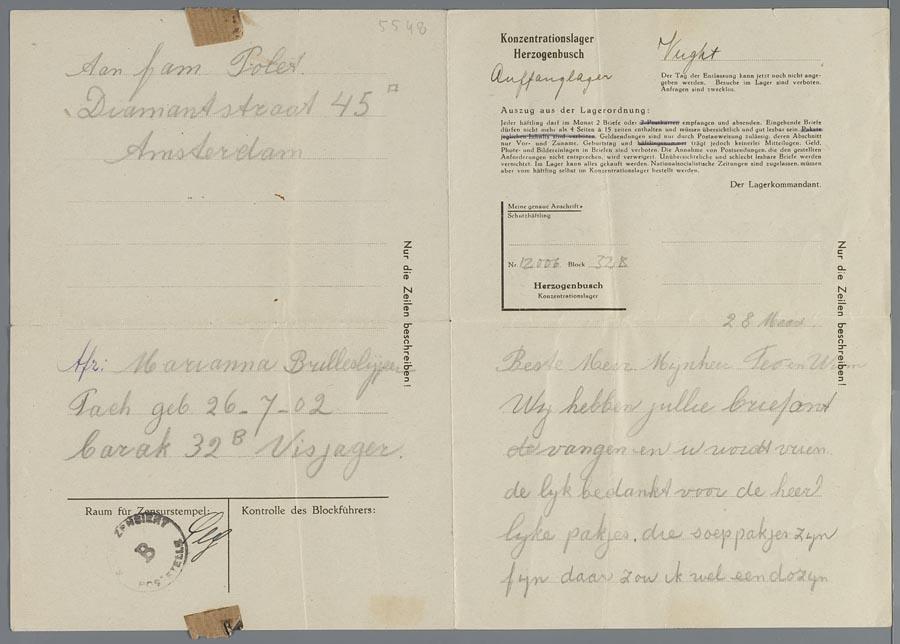 5548
Aan fam Polet
Diamantstraat 45
Amsterdam
Nur die Zeilen beschreiben!
Afz: Marianna Brilleslijper
Tach geb. 26-7-02
barak 32B Visjager.
Raum für Zensurstempel:
Kontrolle des Blockführers:
ZENSIERT
B
POSTSTELLE
Konzentrationslager
Herzogenbusch
Vught
Auffanglager
Der Tag der Entlassung kann jetzt noch nicht ange-
geben werden. Besuche im Lager sind verboten.
Anfragen sind zwecklos.
Auszug aus der Lagerordnung:
Jeder häftling darf im Monat 2 Briefe oder 2 Postkarten empfangen und absenden. Eingehende Briefe
dürfen nicht mehr als 4 Seiten à 15 zeilen enthalten und müssen übersichtlich und gut lesbar sein. Pakete
jeglichen Inhalts sind verboten. Geldsendungen sind nur durch Postanweisung zulässig, deren Abschnitt
nur Vor- und Zuname, Geburtstag und häftlingsnummer trägt jedoch keinerlei Mitteilungen. Geld,
Photo- und Bildereinlagen in Briefen sind verboten. Die Annahme von Postsendungen, die den gestellten
Anforderungen nicht entsprechen, wird verweigert. Unübersichtliche und schlecht lesbare Briefe werden
vernichtet. Im Lager kann alles gekauft werden. Nationalsocialistische Zeitungen sind zugelassen, müssen
aber vom häftling selbst im Konzentrationslager bestellt werden.
Der Lagerkommandant.
Meine genaue Anschrift:
Schutzhäftling
Nr. 12006 Block 32B
Herzogenbusch
Konzentrationslager
Nur die Zeilen beschreiben!
28 Maart
Beste Mevr. Mijnheer Wim
Wij hebben jullie brief ont
de vangen en u wordt vrien
de lijk bedankt voor de heer
lijke pakjes. die soeppakjes zijn
fijn daar zou ik wel een dozijn